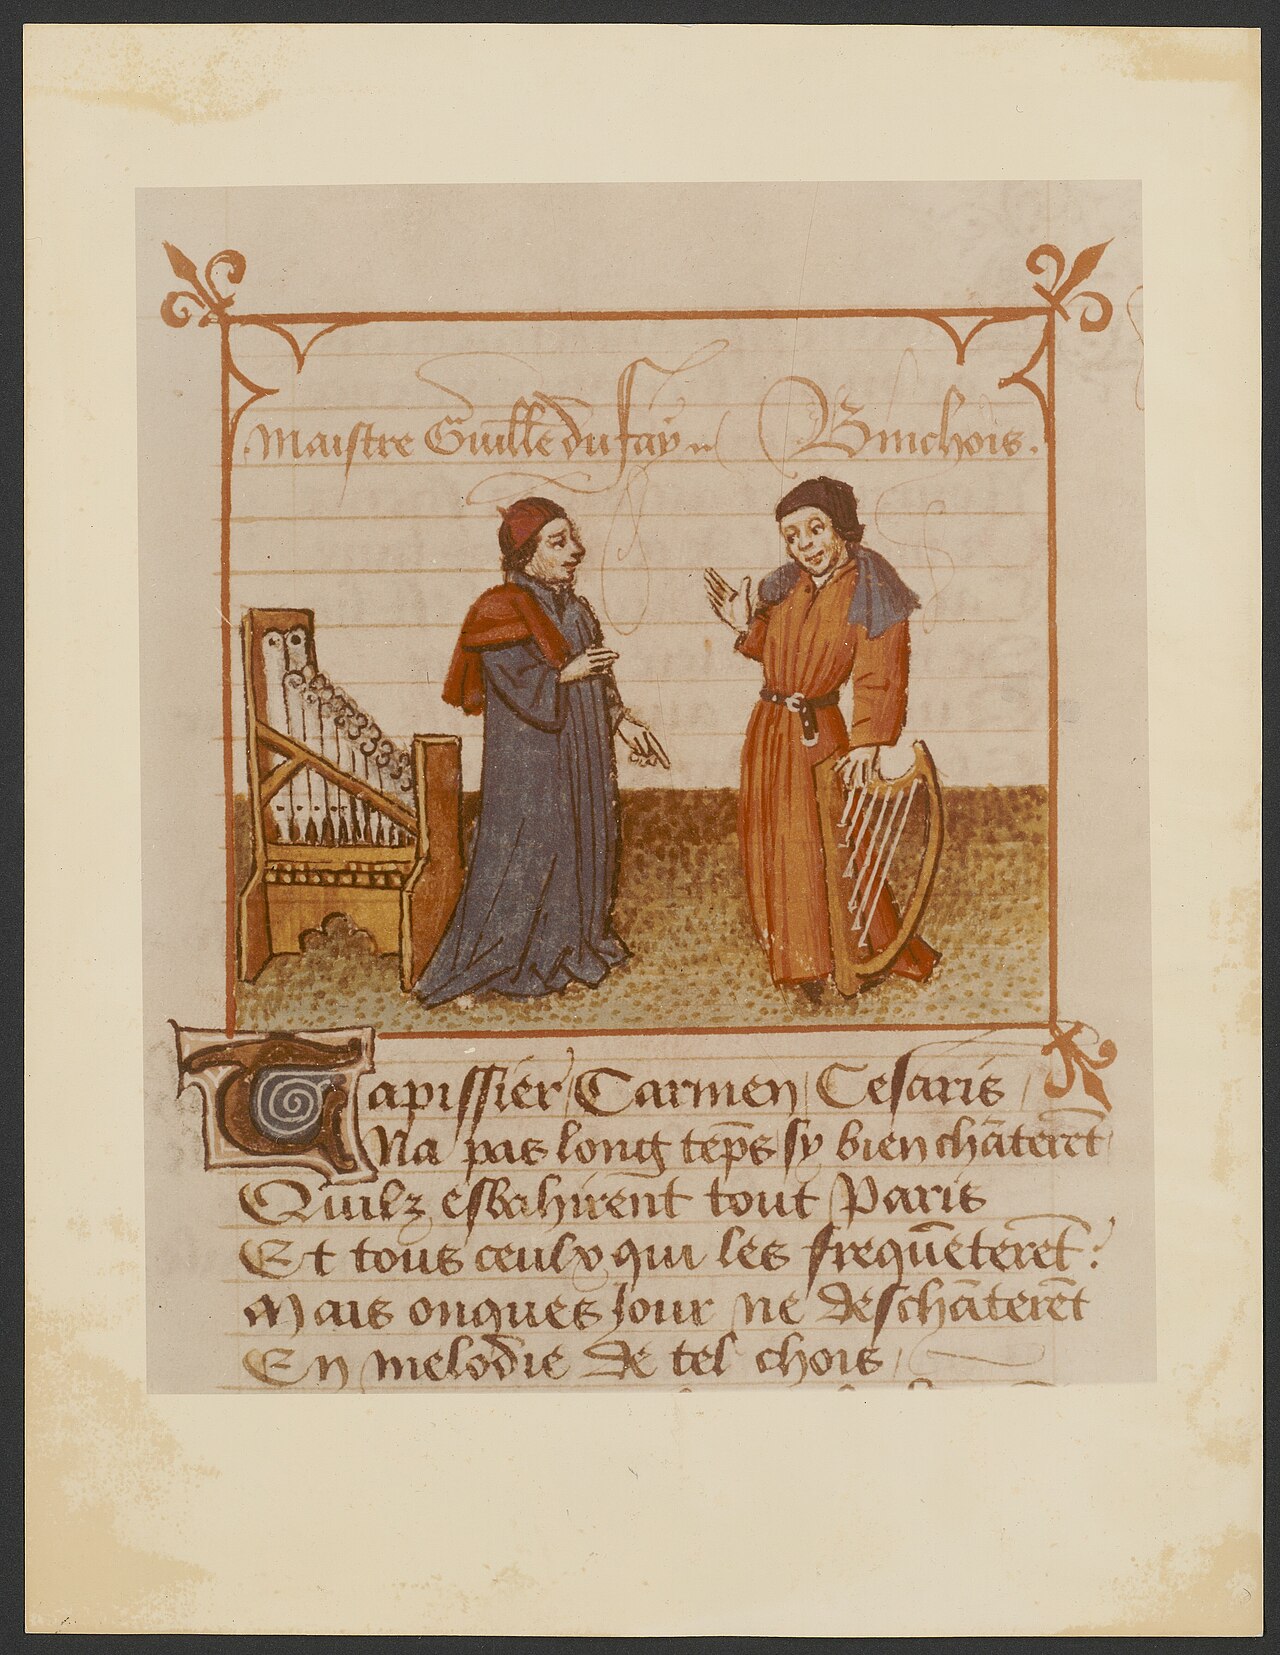 Maistre Guille du fay Binchois.
Tapissier Carmen Cesaris
Na pas long tēps sy bien chāterēt
Quilz esbahirent tout Paris
Et tous ceulx qui les frequēterēt:
Mais onques Jour ne deschāterēt
En melodie de tel chois